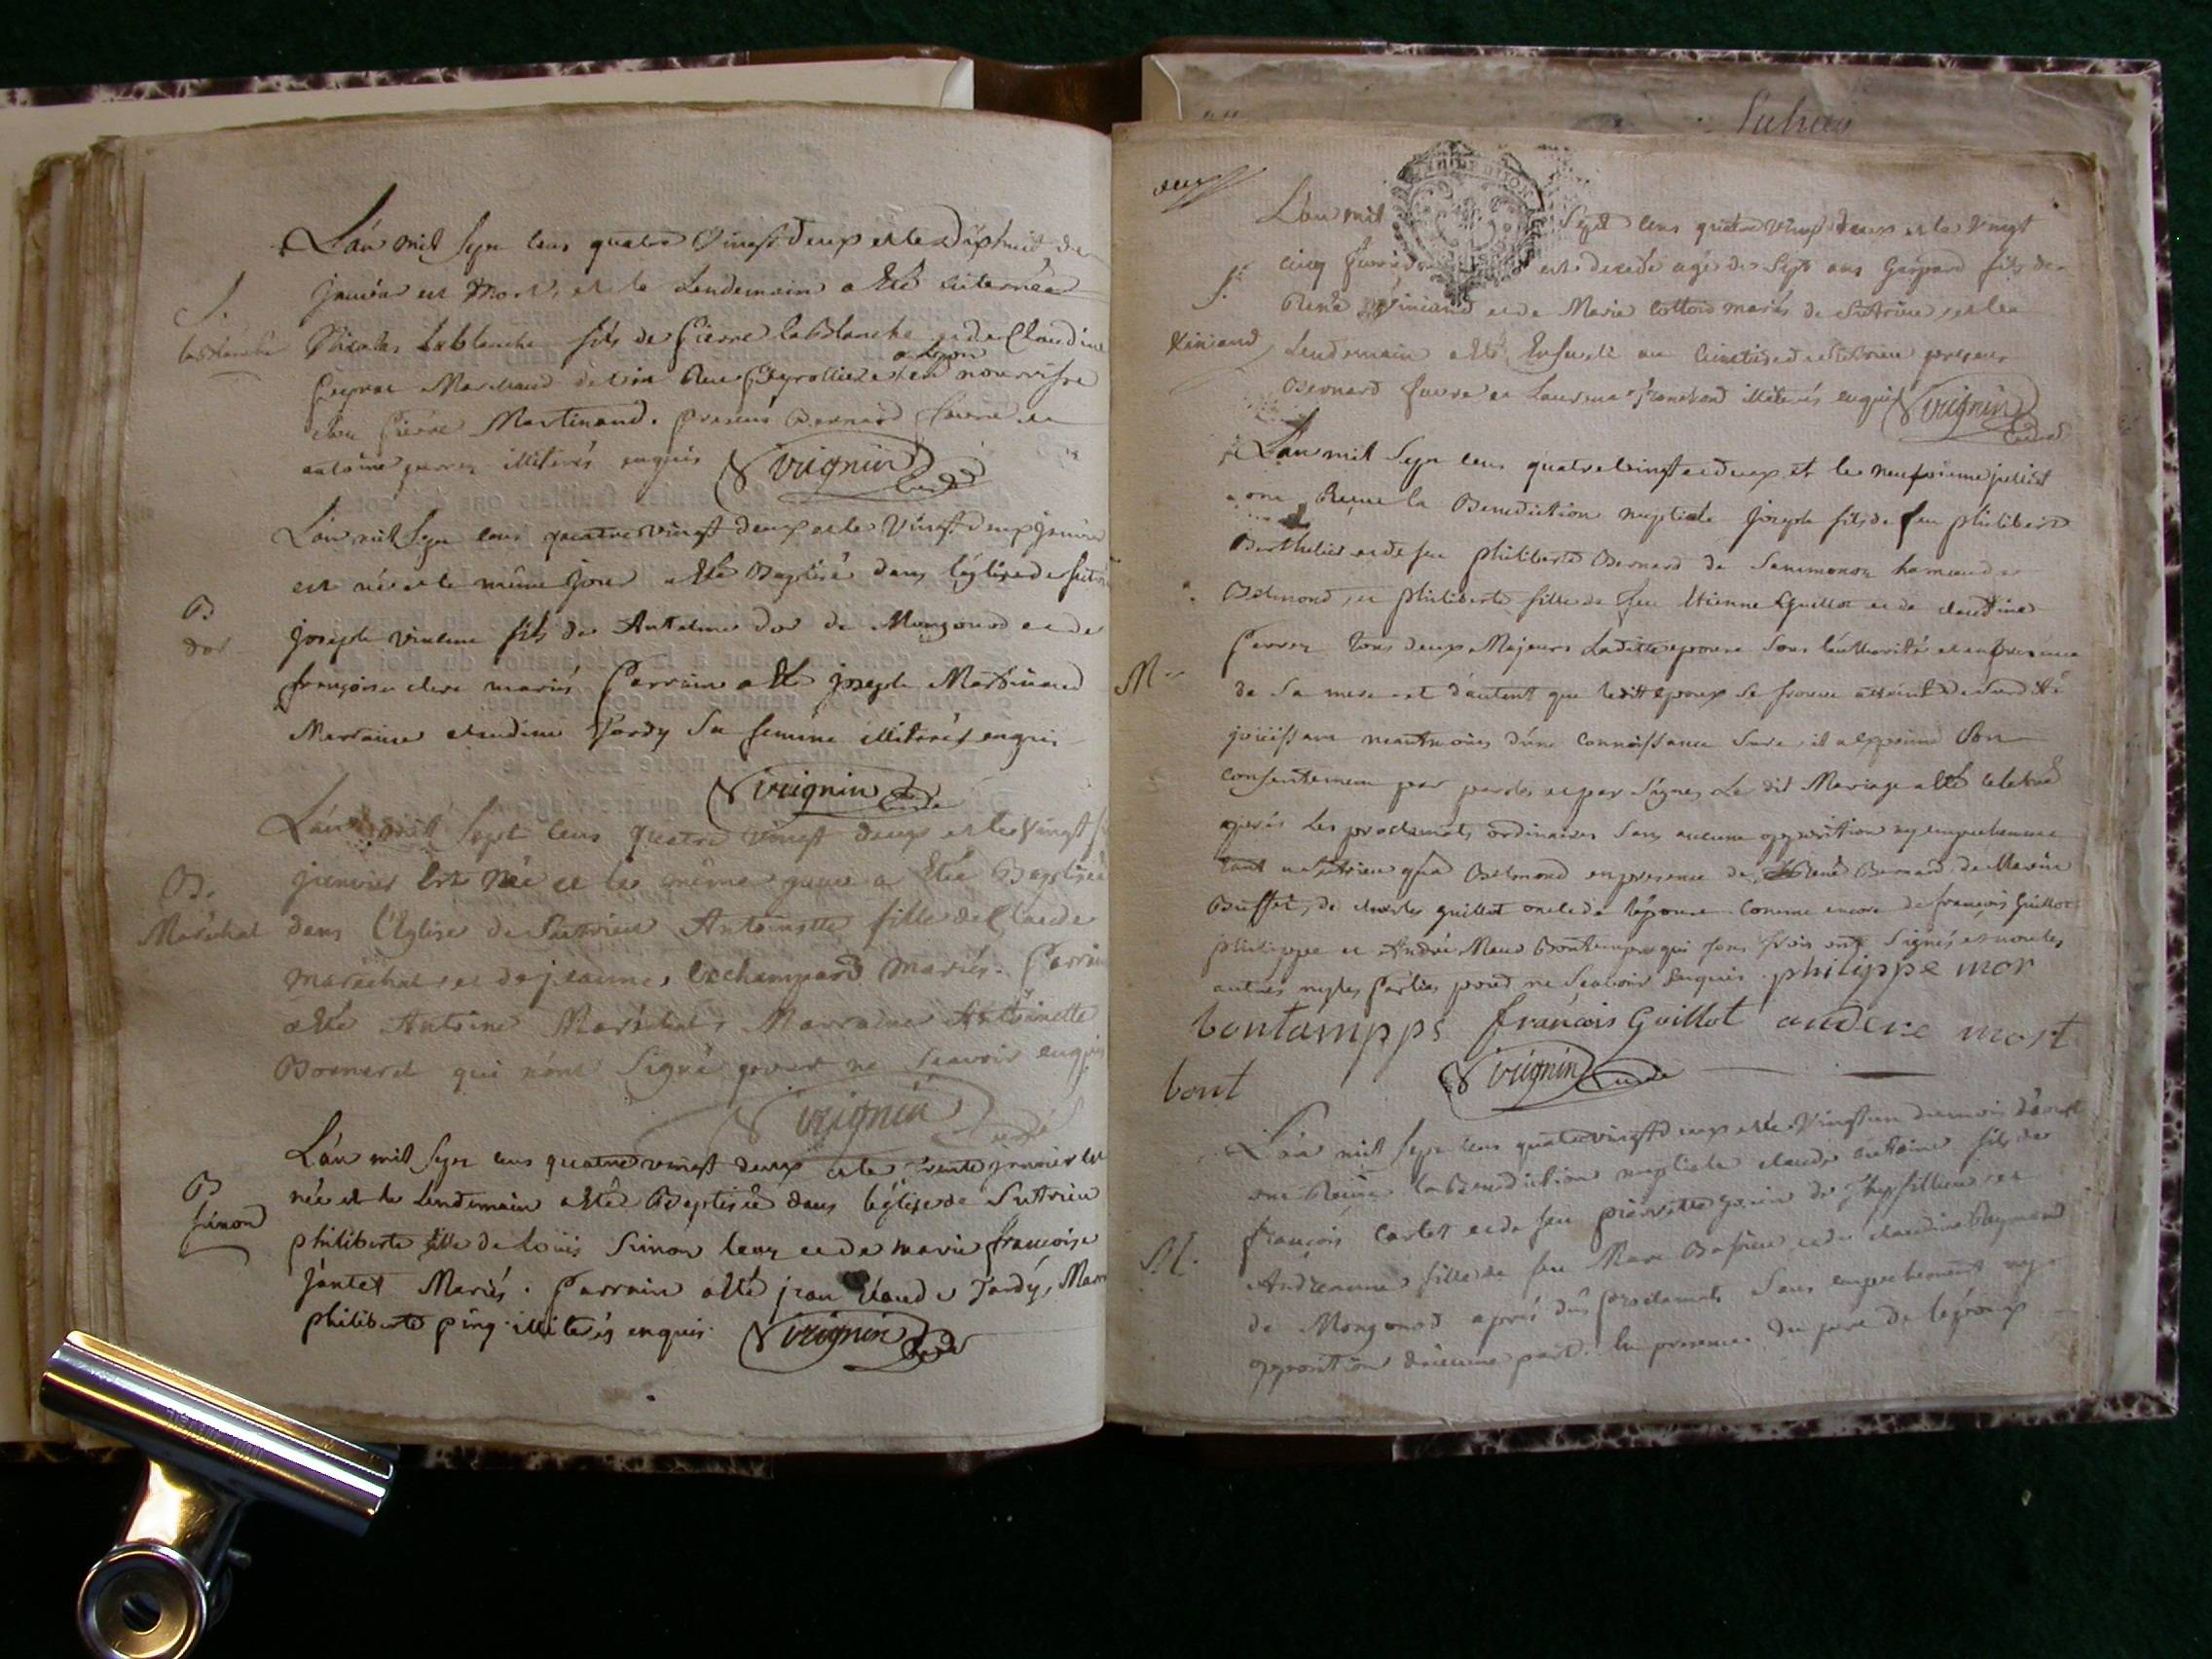 L'an mil sept cens quatre vingt deux et le dixhuit de
janvier est mort, et le Lendemain a été enterré
S.
lablanche
Nicolas Lablanche fils de Pierre lablanche et de Claudine
Peyrac Marchand de vin Rue à Lyon en nourrisse
chez Pierre Martinand. presens Bernard favre et
antoine illiterés enquis Vuignin Curé
L'an mil sept cens quatre vingt deux et le vingt deux janvier
est né et le même jour a été Baptisé dans l'église de
B
dor
joseph vincent fils de Antelme dor de Mongonod et de
françoise clerc mariés Parrain a été joseph Martinand
Marraine claudine Tardy Sa femme illiterés enquis
Vuignin Curé
L'an mil Sept cens quatre vingt deux et le vingt
B.
Maréchal
janvier Est née et le même jour a été Baptisée
dans l'Eglise de Sutrieu Antoinette fille de Claude
maréchal, et de jeanne mariés. Parrain
a été Antoine Maréchal, Marraine Antoinette
Bernard qui n'ont Signé pour ne Scavoir enquis
Vuignin Curé
L'an mil sept cens quatre vingt deux et le trente janvier est
B
simond
née et le Lendemain a été Baptisée dans l'église de Sutrieu
philiberte fille de loüis Simon et de marie françoise
jantet Mariés. Parrain a été jean Claude Tardy, Marr
philiberte illiterés enquis. Vuignin Curé
Sutrieu
L'an mil Sept cens quatre vingt deux et le vingt
cinq est decedé agé de Sept ans Gaspard fils de
S.
Viniand
René Viniand et de Marie Cotton mariés de Sutrieu, et le
Lendemain a été Enseveli au Cimetiere de Sutrieu presens
Bernard favre et Laurent illiterés enquis Vuignin Curé
L'an mil sept cens quatre vingt et deux et le neufvieme juillet
ont Reçue la Benediction nuptiale joseph fils de feu philibert
Berthelier et de feu philiberte Bernard de Sammonon hameau de
Belmond, et philiberte fille de feu Etienne Guillot et de claudine
Perret tous deux Majeurs Ladite epouse Sous l'authorité et en presence
M
de Sa mere et d'autent que ledit epoux Se trouve atteint de surdité
joüissant neantmoins d'une connoissance Sure, il a exprimé Son
consentement par paroles et par Signes Le dit Mariage a été celebré
après les proclamats ordinaires Sans aucune opposition ny empechement
tant a Sutrieu qu'a Belmond en presence de René Bernard, de Marin
Buffet, de charles guillot oncle de l'epouse. comme encore de françois Guillot
philippe et André Mour Bontemps qui tous trois ont Signés et non les
autres ny les Parties pour ne Scavoir Enquis. philippe mor
bontampps françois Guillot andere mort
bont Vuignin Curé
L'an mil sept cens quatre vingt deux et le vingt un du mois d'aoust
ont Reçue la benediction nuptiale claude antoine fils de
françois Carlet et de feu pierrette de et
M.
Andreanne fille de feu Marc et de claudine Reymond
de Mongonod après dus proclamats Sans empechement ny
opposition d'aucune part. En presence du pere de l'epoux